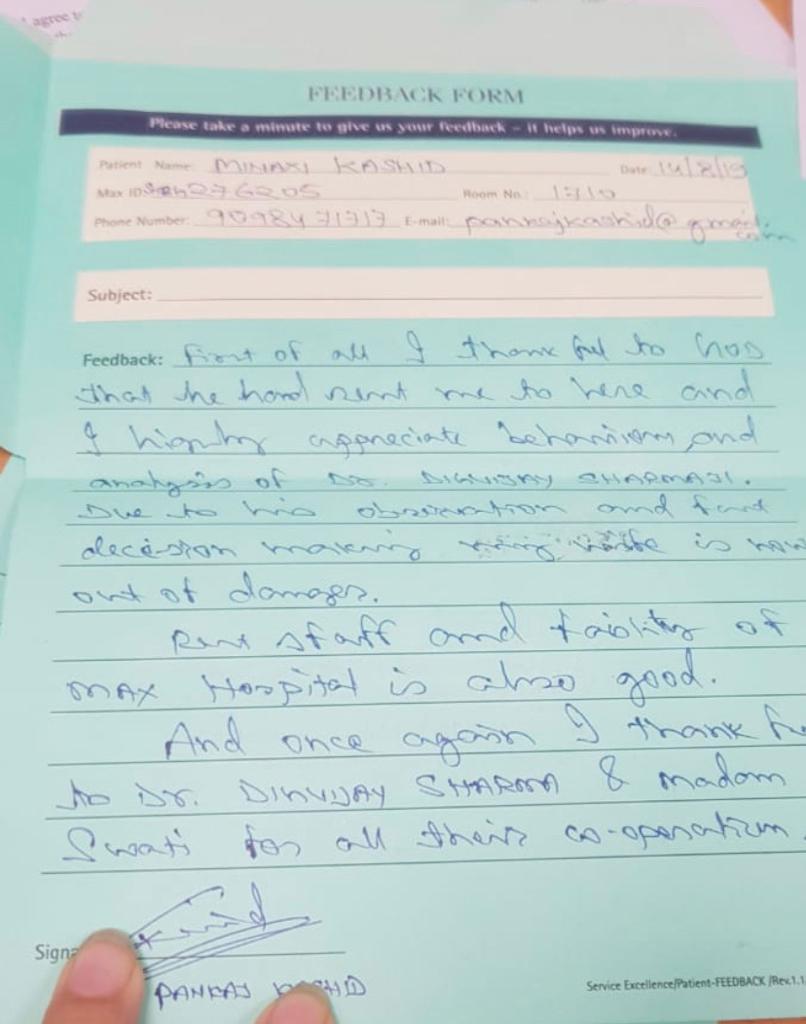 agree t
FEEDBACK FORM
Please take a minute to give us your feedback – it helps us improve.
Patient Name: MINAXI KASHID Date: 14/8/19
Max ID: 276205 Room No.: 1710
Phone Number: 9098471717 E-mail: pankajkashid@gmail.
com
Subject:
Feedback: first of all I thank ful to God
that he hard sent me to here and
I highly appreciate behaviour and
analysis of Dr. DIGVIJAY SHARMAJI.
Due to his observation and fast
decision making wife is now
out of danger.
Rest staff and facility of
MAX Hospital is also good.
And once again I thank fu
to Dr. DIGVIJAY SHARMA & madam
Swati for all their co-operation.
Signa
PANKAJ KASHID
Service Excellence/Patient-FEEDBACK /Rev.1.1